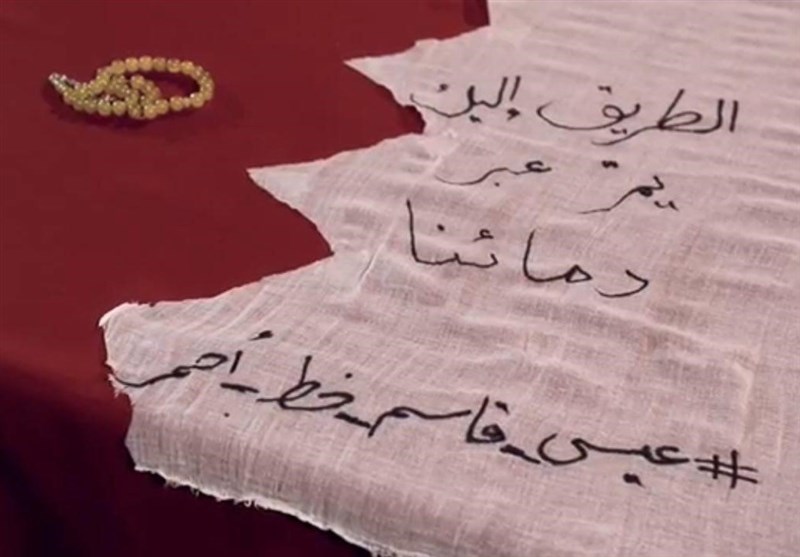 الطريق إليك
يمرّ عبر
دمائنا
#عيسى_قاسم_خط_أحمر